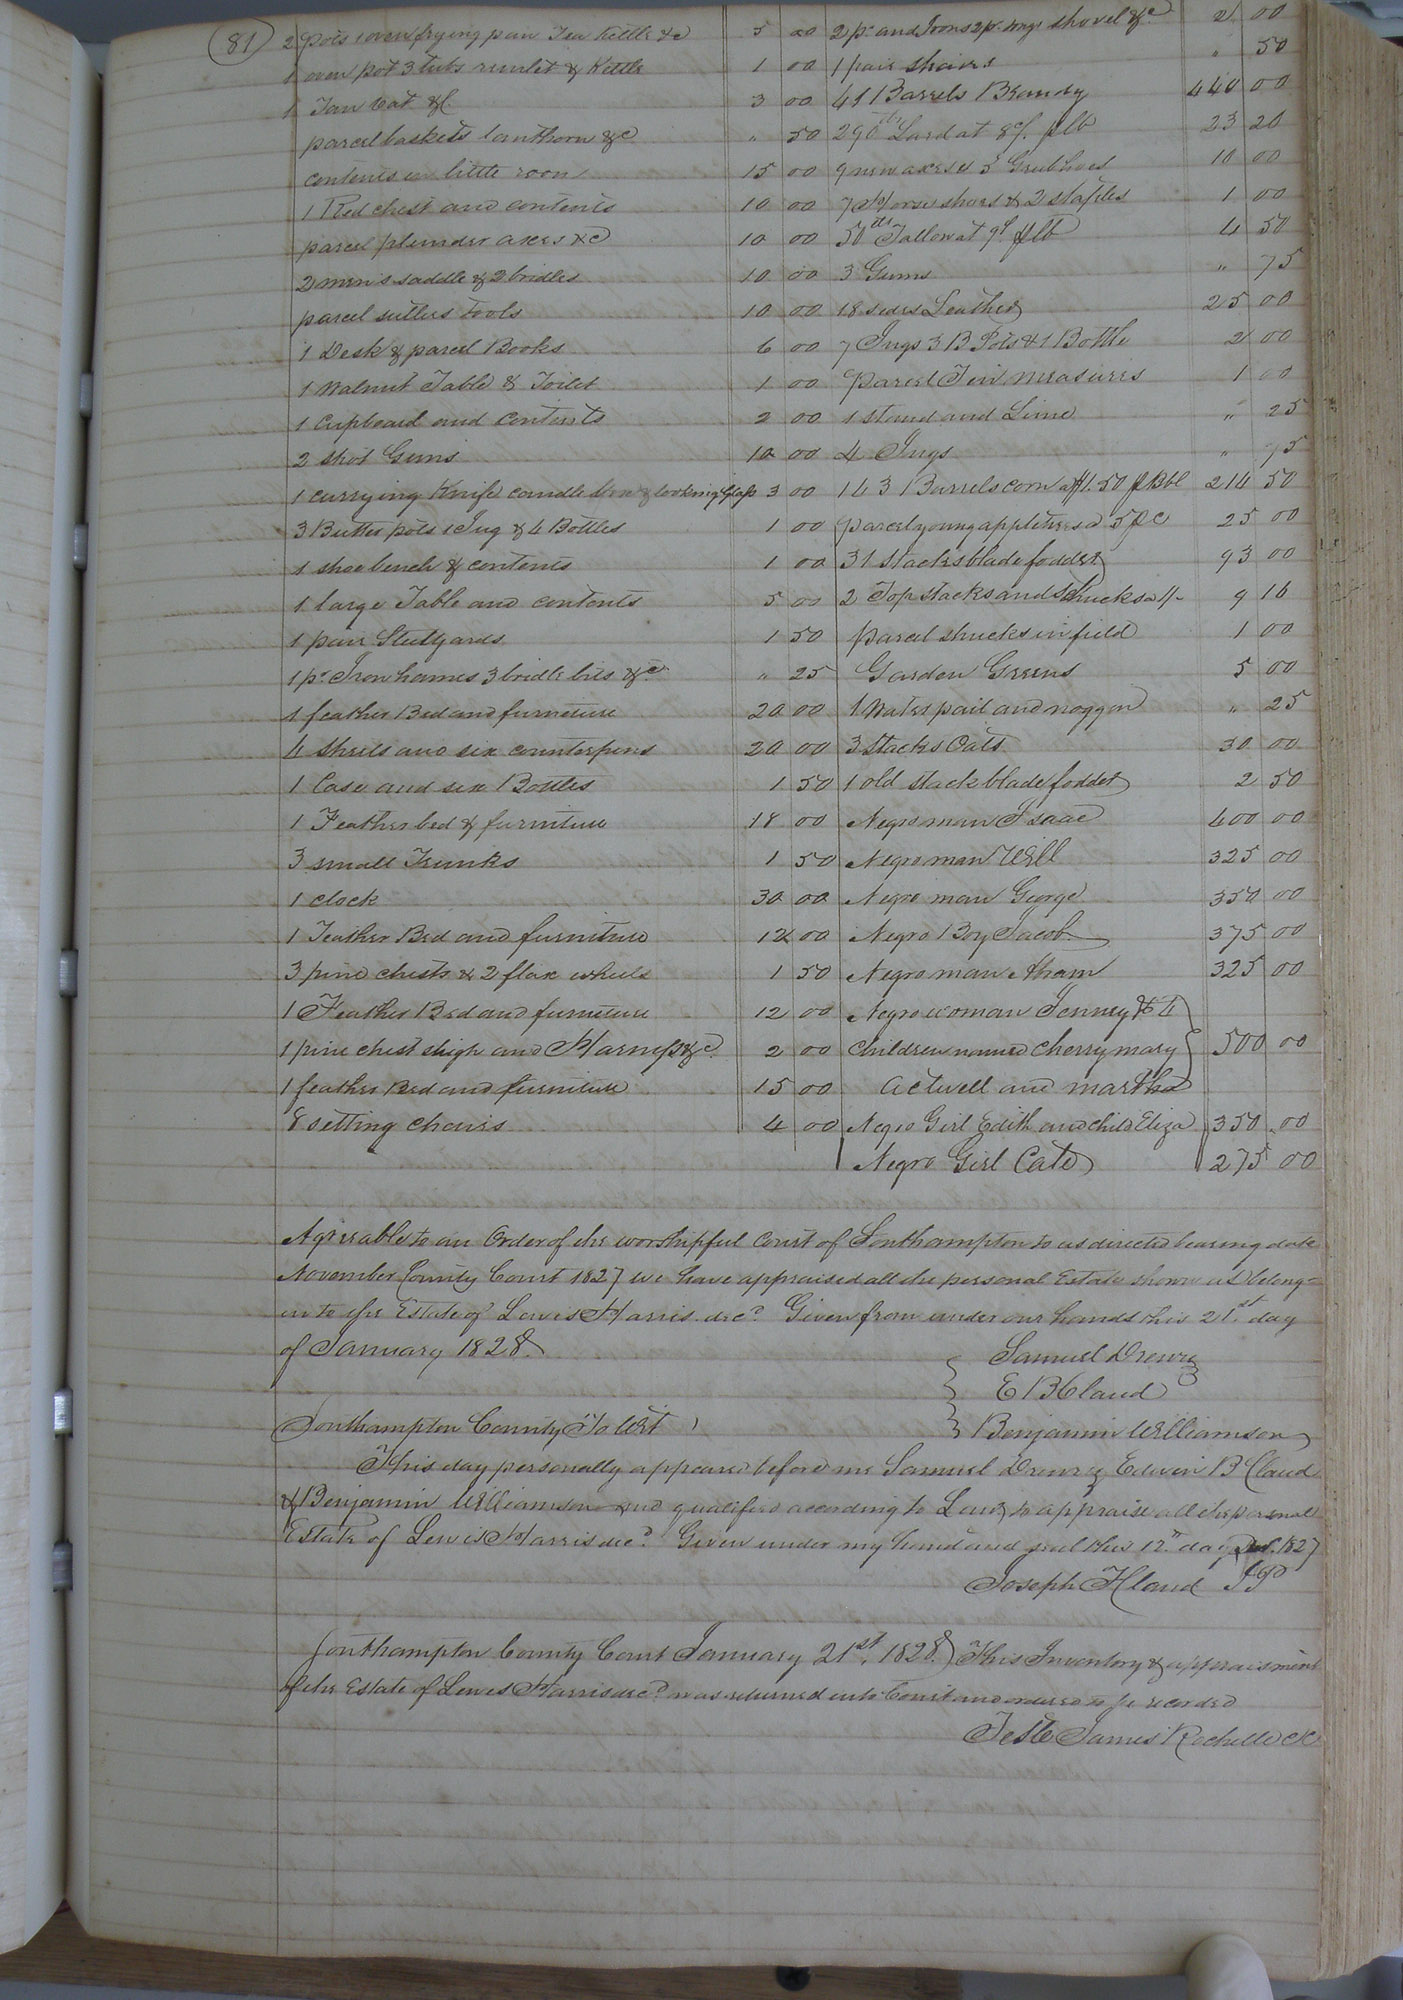 81
2 Pots 1 oven frying pan Tea Kettle &c 5 00
1 oven pot 3 tubs runlet & Kettle 1 00
1 Tan vat &c 3 00
parcel baskets lanthorn &c " 50
contents in little room 15 00
1 Red chest and contents 10 00
parcel plunder axes &c 10 00
2 men's saddle & 2 bridles 10 00
parcel sutlers tools 10 00
1 Desk & parcel Books 6 00
1 Walnut Table & Toilet 1 00
1 Cupboard and Contents 2 00
2 Shot Guns 10 00
1 currying Knife candle box & looking Glass 3 00
3 Butter pots 1 Jug & 4 Bottles 1 00
1 shoe bench & contents 1 00
1 large Table and contents 5 00
1 pair Stillyards 1 50
1 pr Iron hames 3 bridle bits &c " 25
1 feather Bed and furniture 20 00
4 Sheets and six counterpins 20 00
1 Case and six Bottles 1 50
1 Feather bed & furniture 18 00
3 small Trunks 1 50
1 clock 30 00
1 Feather Bed and furniture 12 00
3 pine chests & 2 flax wheels 1 50
1 Feather Bed and furniture 12 00
1 pine chest sleigh and Harness &c 2 00
1 feather Bed and furniture 15 00
8 setting chairs 4 00
2 pr and Irons 2 pr tongs shovel &c 2 00
1 pair shears " 50
41 Barrels Brandy 440 00
290 lbs Lard at 8c/. plb 23 20
9 new axes & 5 Grub hoes 10 00
7 Horse shoes & 2 staples 1 00
50 lbs Tallow at 9c plb 4 50
3 Gums " 75
18 sides Leather 25 00
7 Jugs 3 B Pots & 1 Bottle 2 00
Parcel Tin measures 1 00
1 stand and Lime " 25
4 Jugs " 75
143 Barrels corn a $1.50 p Bbl 214 50
parcel young appletrees a 5 p c 25 00
31 Stacks blade fodder 93 00
2 Top stacks and Shucks a 9 16
parcel shucks in field 1 00
Garden Greens 5 00
1 Water pail and noggon " 25
3 Stacks Oats 30 00
1 old stack blade fodder 2 50
Negro man Isaac 400 00
Negro man Will 325 00
Negro man George 350 00
Negro Boy Jacob 375 00
Negro man Abram 325 00
Negro woman Jenney & 4
Children named Cherry mary 500 00
Actwell and martha
Negro Girl Edith and child Eliza 350 00
Negro Girl Cate 275 00
Agreeable to an Order of the worshipful Court of Southampton to us directed bearing date
November County Court 1827 we have appraised all the personal Estate shown us belong=
in to the Estate of Lewis Harris decd Given from under our hands this 21st day
of January 1828
Samuel Drewry
E B Claud
Southampton County To Wit
Benjamin Williamson
This day personally appeared before me Samuel Drewry Edwin B Claud
& Benjamin Williamson and qualified according to Law to appraise all the personal
Estate of Lewis Harris decd Given under my hand and seal this 12th day Dec. 1827
Joseph H Claud JP
Southampton County Court January 21st, 1828 This Inventory & appraisment
of the Estate of Lewis Harris decd was returned into Court and ordered to be recorded
Teste James Rochelle CC